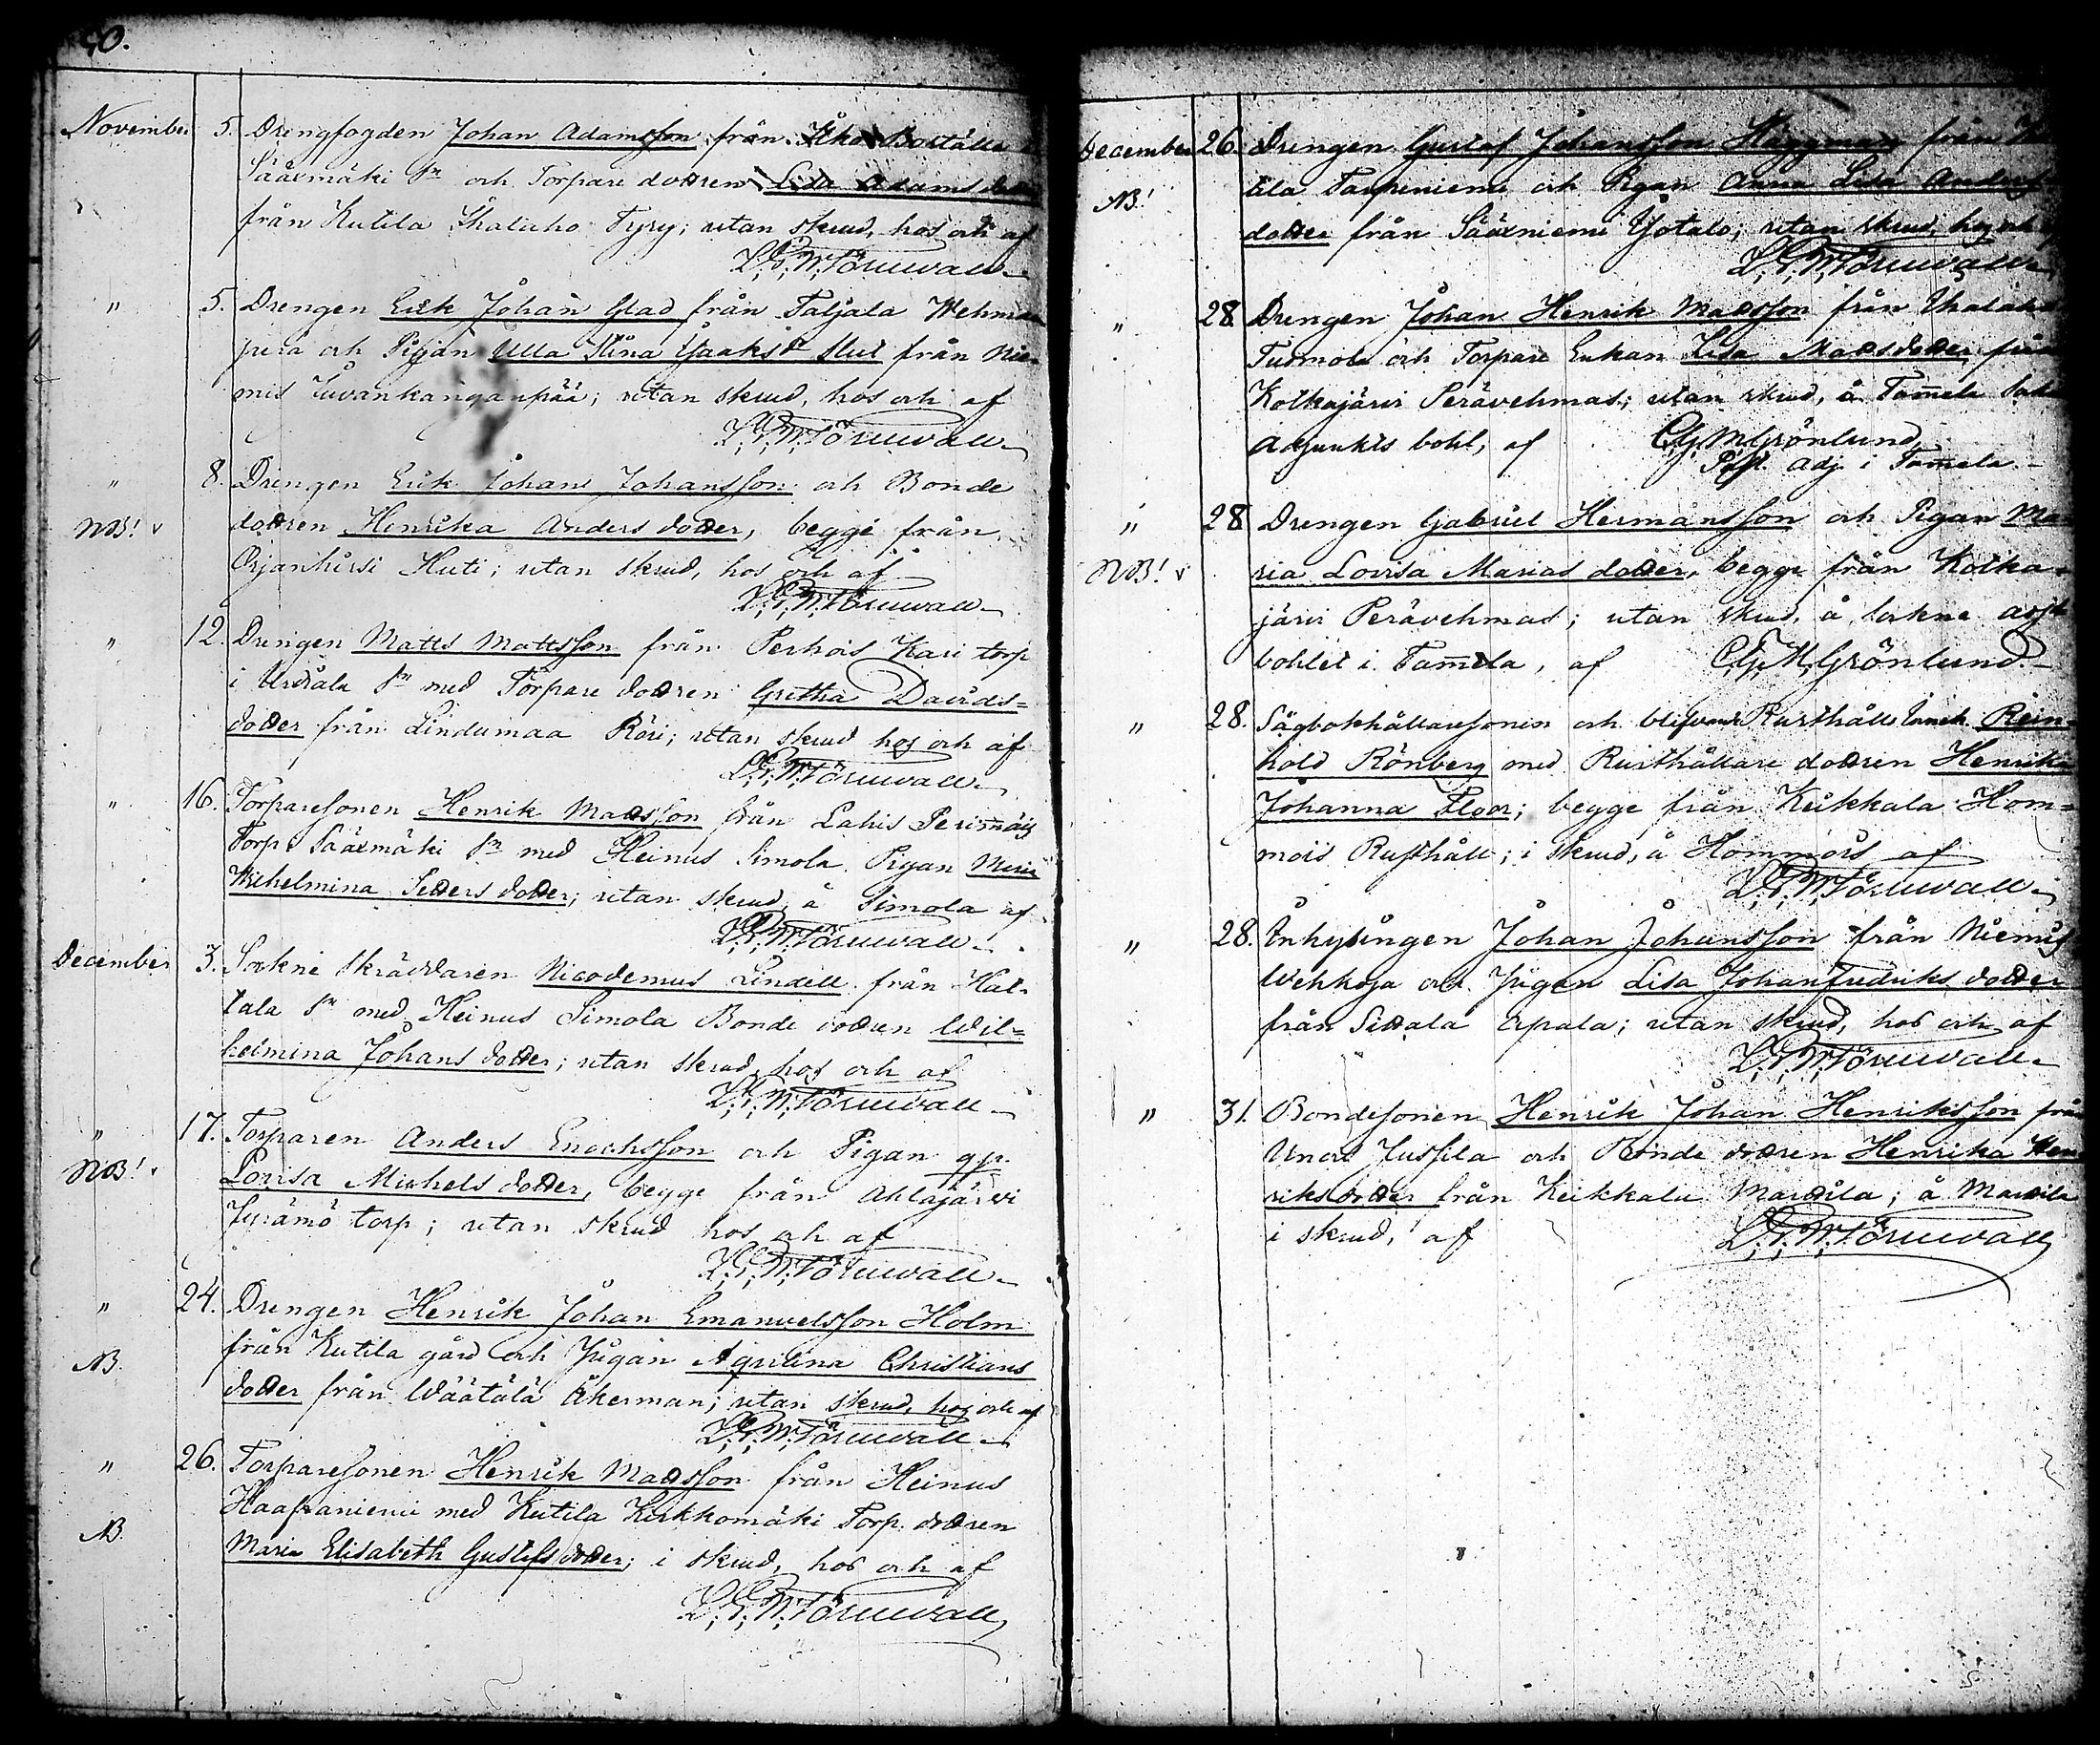 50.
November 5. Drengfogden Johan Adamsson från Boställe
Sääxmäki Sn och Torpare dottren Lisa Adams dotter
från Kutila Ihalaho Tyry; utan skrud, hos och af
L.G.W. Törnwall
" 5. Drengen Erik Johan Glad från Taljala Wehman
perä och Pigan Ulla Stina Jaaks dr Slut från Nie-
mis Luvankanganpää; utan skrud, hos och af
L.G.W. Törnwall
" 8. Drengen Erik Johans Johansson och Bonde
NB! v dottren Henrika Anders dotter, begge från
Orjanhirsi Huti; utan skrud, hos och af
L.G.W. Törnwall
" 12. Drengen Matts Mattsson från Perhois Kari torp
i Urdiala Sn med Torpare dottren Gretha Davids=
dotter från Lindumaa Röri; utan skrud hos och af
L.G.W. Törnwall
" 16. Torparesonen Henrik Mattsson från Lahis
Torp Sääxmäki Sn med Heinus Simola Pigan Maria
Wilhelmina Petters dotter; utan skrud, å Simola af
L.G.W. Törnwall
December 3. Sockne skräddaren Nicodemus Lindell från Hat-
tala Sn med Heinus Simola Bonde dottren Wil=
helmina Johans dotter; utan skrud, hos och af
L.G.W. Törnwall
" 17. Torparen Anders Enochsson och Pigan
NB! v Lovisa Michels dotter, begge från Ahlajärvi
Jyrämö torp; utan skrud hos och af
L.G.W. Törnwall
" 24. Drengen Henrik Johan Emanuelsson Holm
NB. från Kutila gård och Pigan Agritina Christians
dotter från Wäätälä Åkerman; utan skrud, hos och af
L.G.W. Törnwall
" 26. Torparesonen Henrik Mattsson från Heinus
Haapaniemi med Kutila Kirkkomäki Torp. dottren
NB. Maria Elisabeth Gustafs dotter; i skrud, hos och af
L.G.W. Törnwall
December 26. Drengen Gustaf Johansson Häggman från
NB! tila Tarpeniemi och Pigan Anna Lisa Anders
dotter från Sääxniemi Yötalo; utan skrud, hos och af
L.G.W. Törnwall
" 28. Drengen Johan Henrik Mattsson från
Tuomola och Torpare Enkan Lisa Mattsdotter från
Kolkajärvi Perävehmas; utan skrud, å Tammela
Adjunkts bohl, af C.G.M. Grönlund,
Past. Adj. i Tammela.
" 28 Drengen Gabriel Hermansson och Pigan Ma-
NB! v ria Lovisa Marias dotter, begge från Kolka-
järvi Perävehmas; utan skrud, å Sockne adj.
bohlet i Tammela, af C.G.M. Grönlund.
" 28. Sågbokhållaresonen och blifvande Rusthåll Reìn
hold Rönberg med Rusthållare dottren Henrika
Johanna Floor; begge från Keikkala Hom=
mois Rusthåll; i skrud, å Hommois, af
L.G.W. Törnwall
" 28. Inhysingen Johan Johansson från Niemis
Wehkoja och Pigan Lisa Johanfredriks dotter
från Sittala Arpala; utan skrud, hos och af
L.G.W. Törnwall
" 31. Bondesonen Henrik Johan Henriksson från
Jussila och Bonde dottren Henrika Hen
riksdotter från Keikkala Mattila; å Mattila
i skrud, af L.G.W. Törnwall